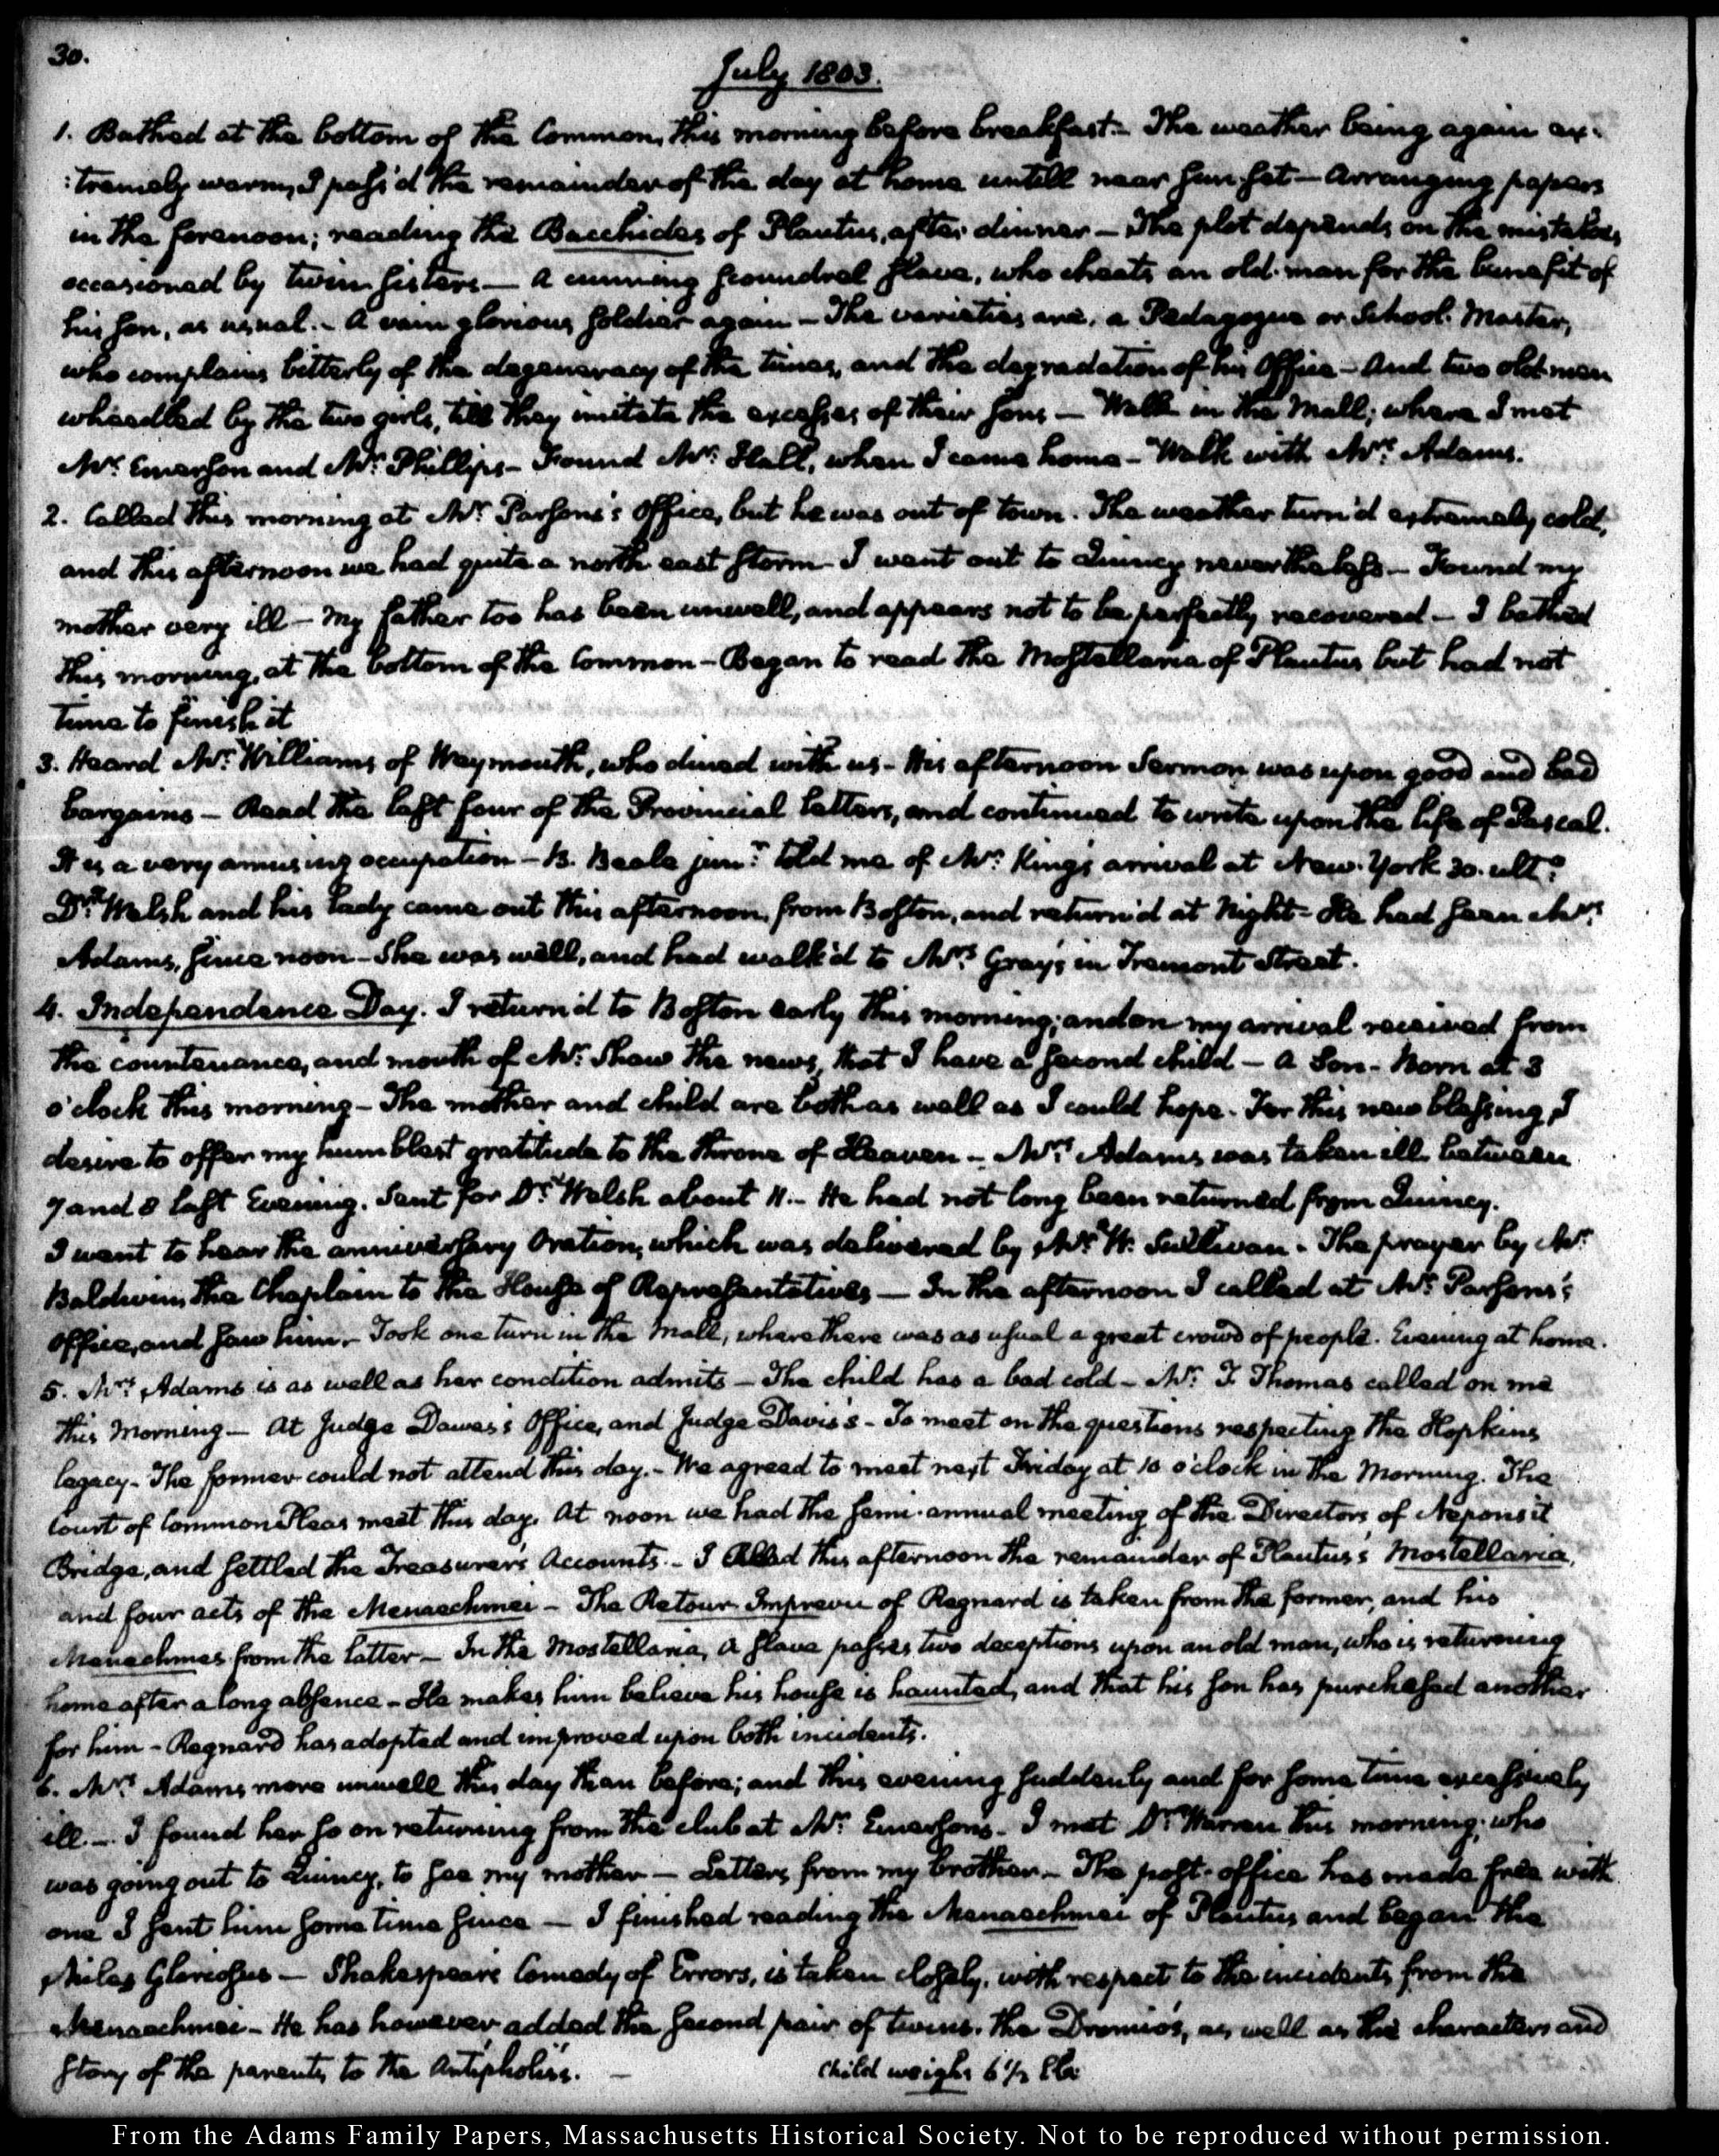 30.
July 1803.
1. Bathed at the bottom of the Common, this morning before breakfast. The weather being again ex-
:tremely warm, I pass'd the remainder of the day at home untill near sun-set — Arranging papers
in the forenoon; reading the Bacchides of Plautus, after dinner — The plot depends on the mistakes
occasioned by twin sisters — A cunning scoundrel slave, who cheats an old man for the benefit of
his son, as usual. — A vain glorious soldier again — The varieties are, a Pedagogue or School-Master,
who complains bitterly of the degeneracy of the times, and the degradation of his Office — And two old men
wheedled by the two girls, till they imitate the excesses of their sons — Walk in the Mall; where I met
Mr. Emerson and Mr. Phillips — Found Mr. Hall, when I came home — Walk with Mrs. Adams.
2. Called this morning at Mr. Parsons's Office, but he was out of town. The weather turn'd extremely cold,
and this afternoon we had quite a north east storm — I went out to Quincy nevertheless — Found my
mother very ill — My father too has been unwell, and appears not to be perfectly recovered — I bathed
this morning, at the bottom of the Common — Began to read the Mostellaria of Plautus, but had not
time to finish it
3. Heard Mr. Williams of Weymouth, who dined with us — His afternoon Sermon was upon good and bad
bargains — Read the last four of the Provincial Letters, and continued to write upon the life of Pascal.
It is a very amusing occupation — B. Beale junr. told me of Mr. King's arrival at New-York 30. ulto.
Dr. Welsh and his Lady came out this afternoon, from Boston, and return'd at Night — He had seen Mrs.
Adams, since noon — She was well, and had walk'd to Mrs. Gray's in Tremont Street.
4. Independence Day. I return'd to Boston early this morning; and on my arrival received from
the countenance, and mouth of Mr. Shaw the news, that I have a second child — A Son — Born at 3
o'clock this morning — The mother and child are both as well as I could hope. For this new blessing, I
desire to offer my humblest gratitude to the throne of Heaven — Mrs. Adams was taken ill between
7 and 8 last Evening. Sent for Dr. Welsh about 11. — He had not long been returned from Quincy.
I went to hear the anniversary Oration, which was delivered by Mr. W. Sullivan — The prayer by Mr.
Baldwin, the Chaplain to the House of Representatives — In the afternoon I called at Mr. Parsons's
office, and saw him. — Took one turn in the Mall, where there was as usual a great crowd of people. Evening at home.
5. Mrs. Adams is as well as her condition admits — The child has a bad cold — Mr. I. Thomas called on me
this Morning — At Judge Dawes's Office, and Judge Davis's — To meet on the questions respecting the Hopkins
legacy — The former could not attend this day. — We agreed to meet next Friday at 10 o'clock in the Morning. The
Court of Common Pleas meet this day. At noon we had the semi-annual meeting of the Directors of Neponsit
Bridge, and settled the Treasurer's Accounts. — I Read this afternoon the remainder of Plautus's Mostellaria,
and four acts of the Menaechmei — The Retour Imprevu of Regnard is taken from the former, and his
Menechmes from the latter — In the Mostellaria, a slave passes two deceptions upon an old man, who is returning
home after a long absence — He makes him believe his house is haunted, and that his son has purchased another
for him — Regnard has adopted and improved upon both incidents.
6. Mrs. Adams more unwell this day than before; and this evening suddenly and for some time excessively
ill — I found her so on returning from the club at Mr. Emerson's — I met Dr. Warren this morning; who
was going out to Quincy, to see my mother — Letters from my brother — The post-office has made free with
one I sent him some time since — I finished reading the Menaechmei of Plautus and began the
Miles Gloriosus — Shakespeare Comedy of Errors, is taken closely, with respect to the incidents from the
Menaechmei — He has however added the second pair of twins, the Dromios, as well as the characters and
story of the parents to the Antipholis's. —
Child weighs 6 1/2 lb:
From the Adams Family Papers, Massachusetts Historical Society. Not to be reproduced without permission.